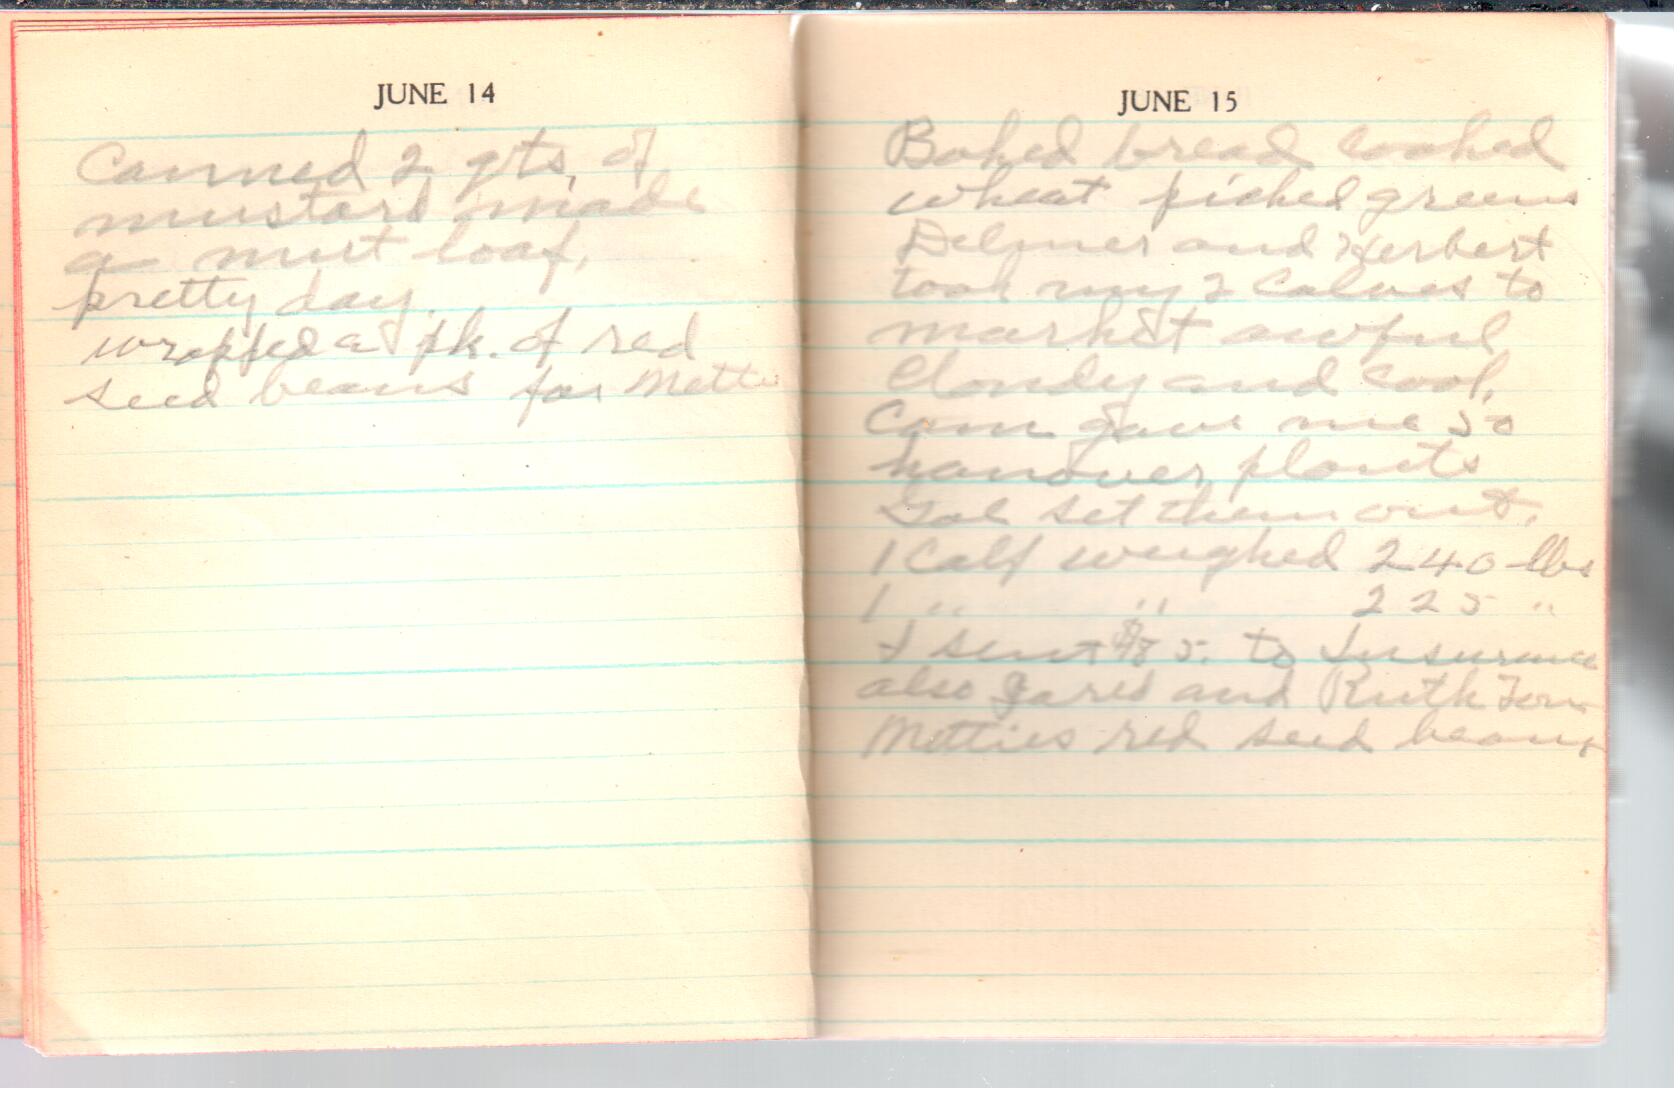 JUNE 14
Canned 2 qts. of
mustard made
a nut loaf.
pretty day.
wrapped a pk. of red
seed beans for Mettie
JUNE 15
Baked bread cooked
wheat picked greens
Delmer and Herbert
took my 2 Calves to
market awful
Cloudy and cool.
Cam gave me 50
hanover plants
set them out.
1 Calf weighed 240 lbs
1 " " 225 "
I sent to Insurance
also and Ruth
Metties red seed beans